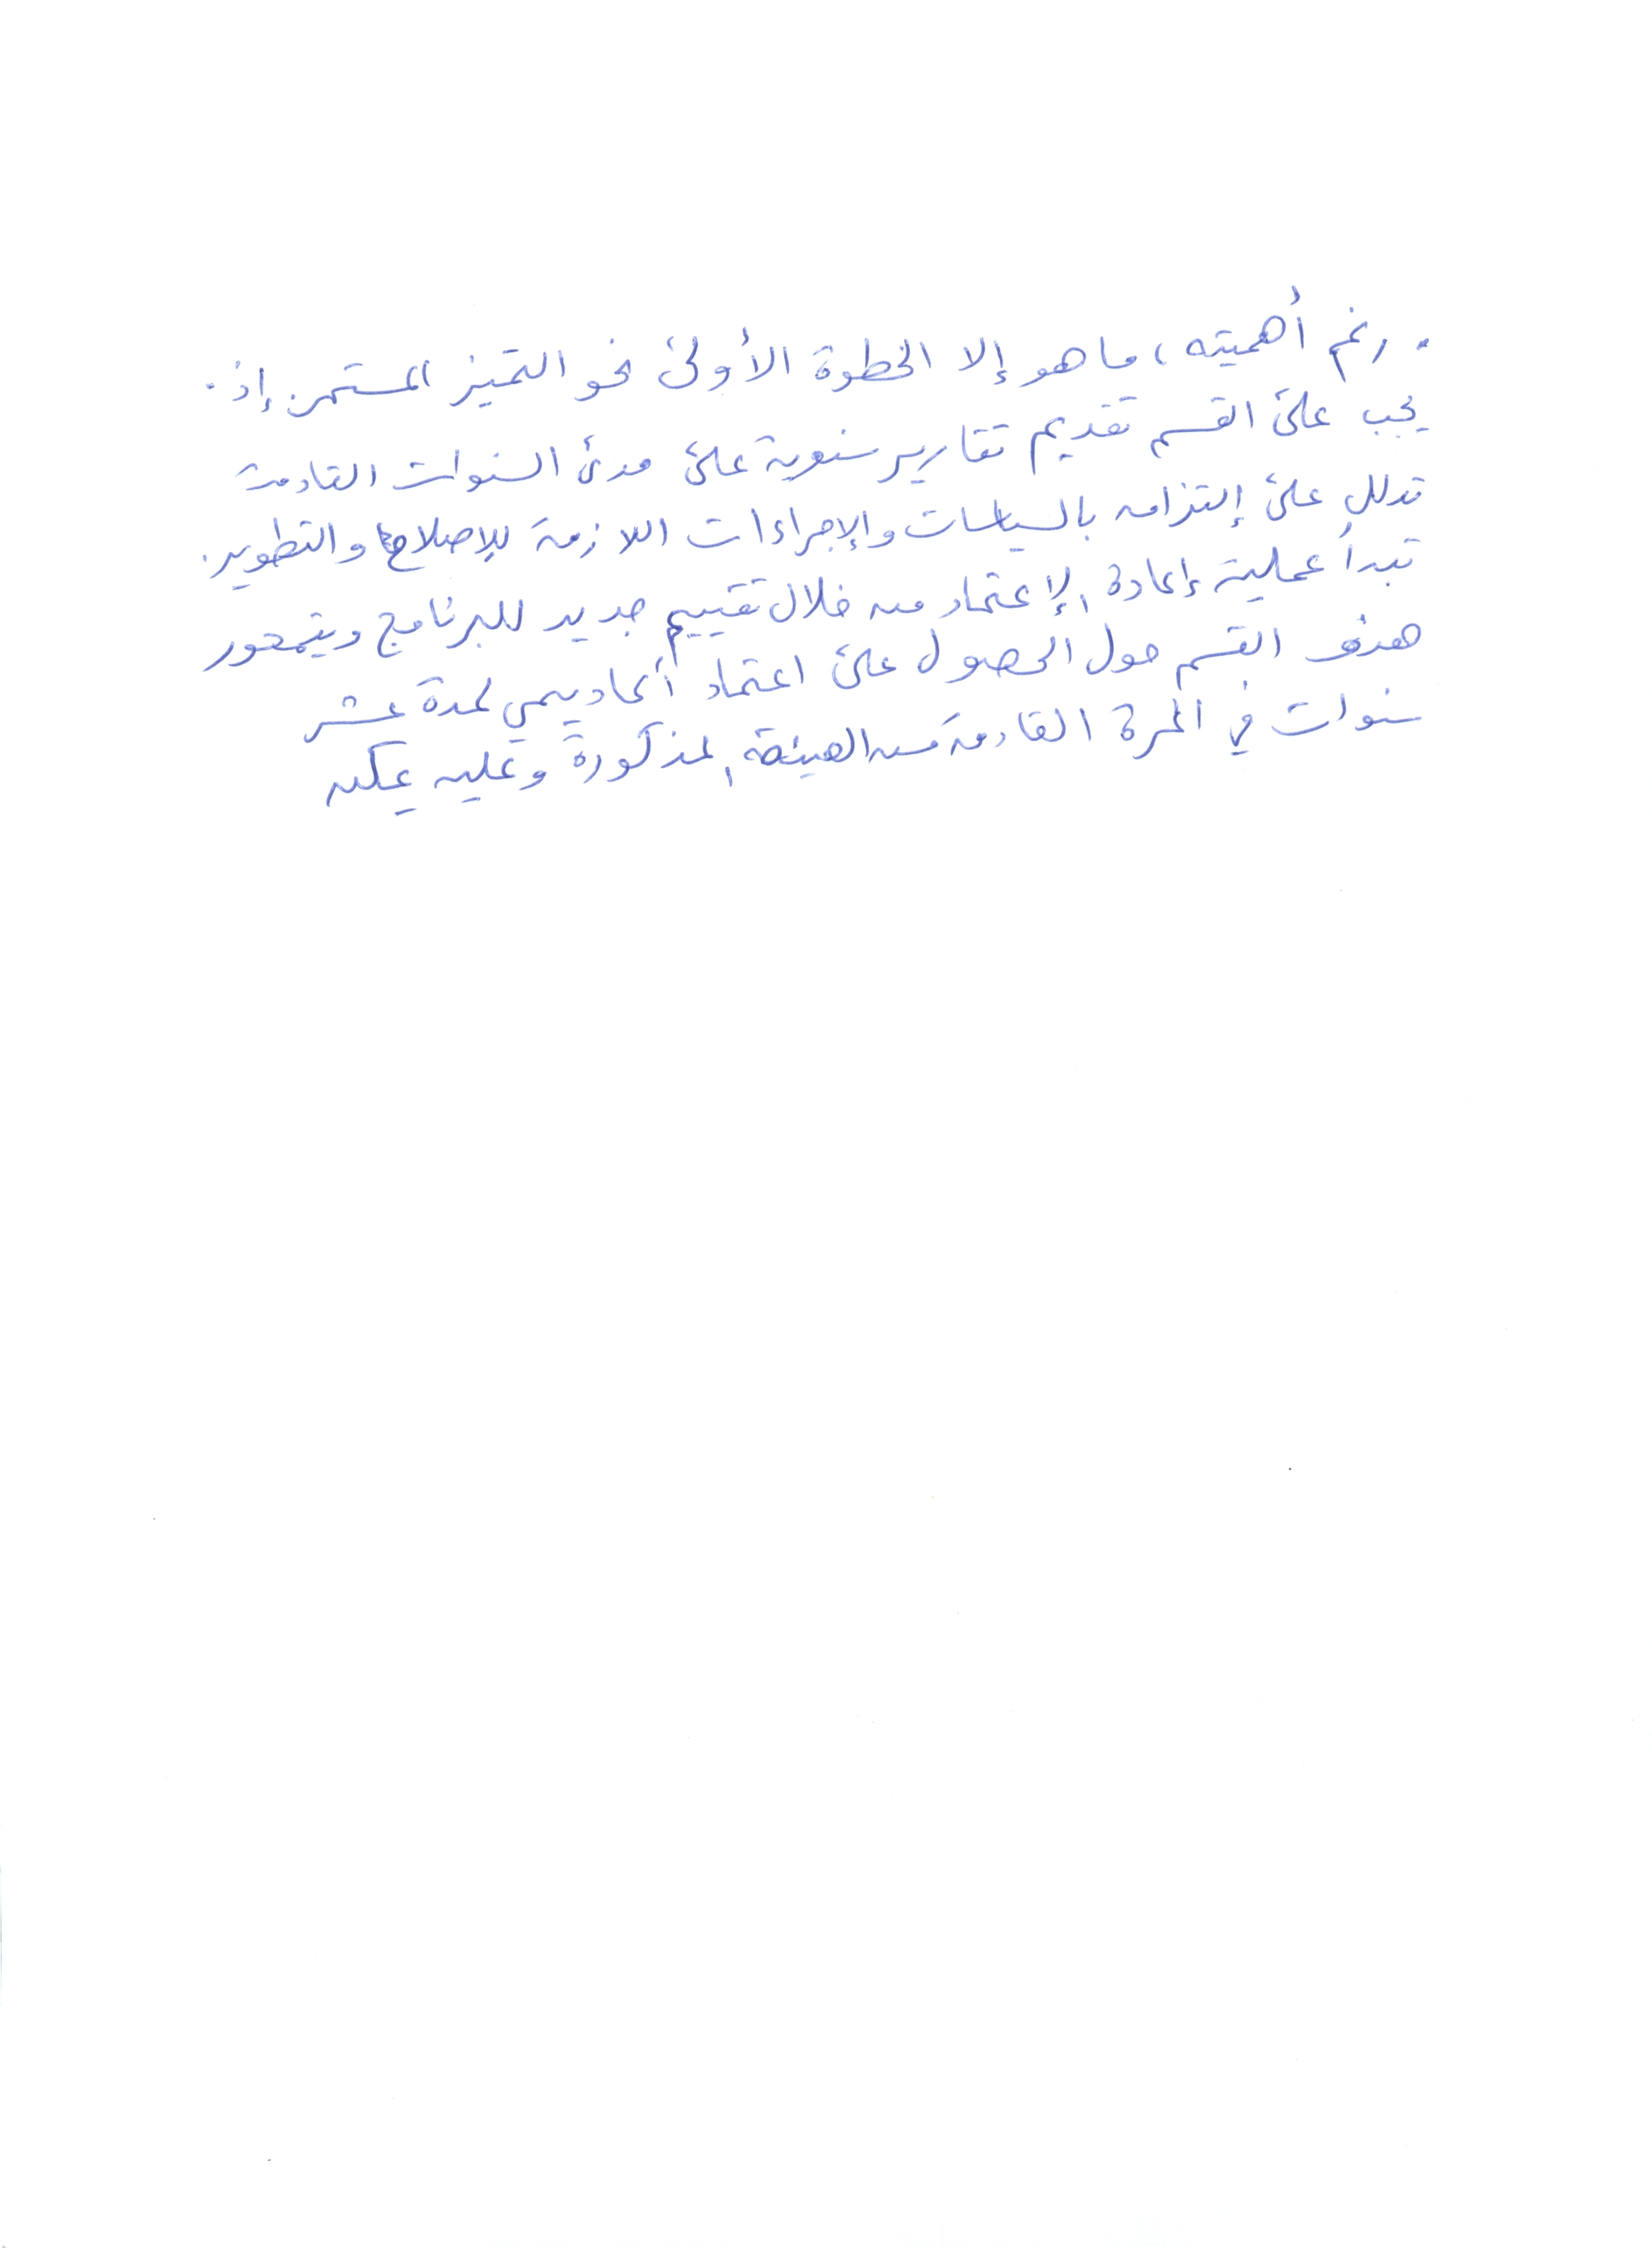 . رغم أهميته، ما هو إلا الخطوة الأولى نحو التميز المستمر. إذ.
يجب على القسم تقديم تقارير سنوية على مدى السنوات القادمة
تدلل على إلتزامه بالسياسات والإجراءات اللازمة للإصلاح والتطوير.
تبدأ عملية إعادة الإعتماد من خلال تقييم جديد للبرنامج ويتمحور
هدف القسم حول الحصول على اعتماد أكاديمي لمدة عشر
سنوات في المرة القادمة من الهيئة المذكورة وعليه يمكن